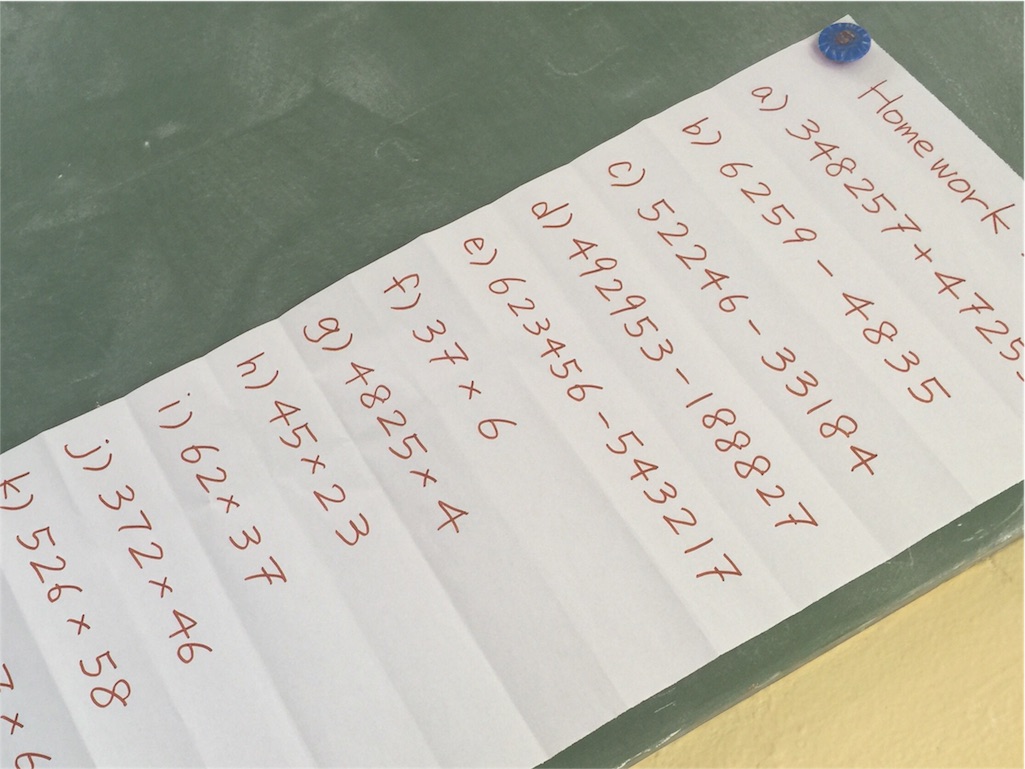 Homework
a) 348257 + 4725
b) 6259 - 4835
c) 52246 - 33184
d) 492953 - 188827
e) 623456 - 543217
f) 37 × 6
g) 4825 × 4
h) 45 × 23
i) 62 × 37
j) 372 × 46
k) 526 × 58
7 × 6